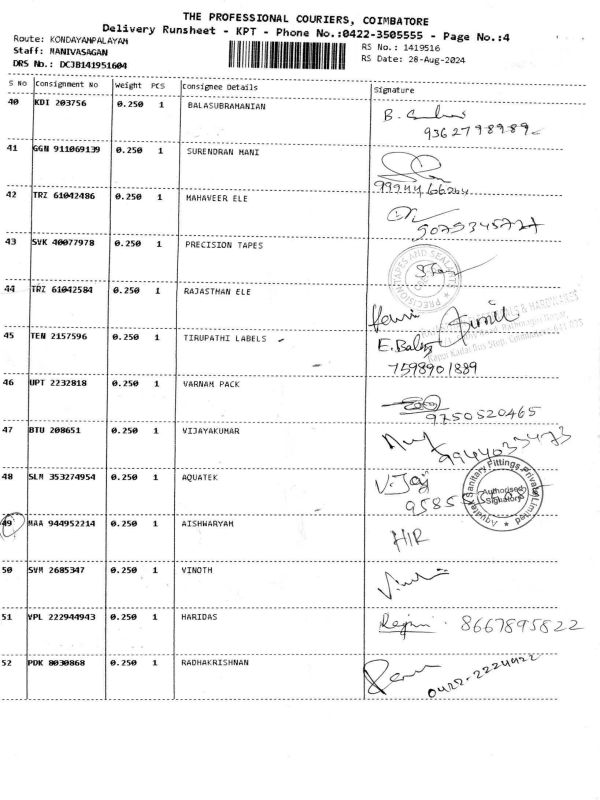 THE PROFESSIONAL COURIERS, COIMBATORE
Delivery Runsheet - KPT - Phone No.:0422-3505555 - Page No.:4
Route: KONDAYAMPALAYAM
Staff: MANIVASAGAN
DRS No.: DCJB141951604
RS No.: 1419516
RS Date: 28-Aug-2024
S No Consignment No Weight PCS Consignee Details Signature
40 KDI 203756 0.250 1 BALASUBRAMANIAN
9362798989
41 GGN 911069139 0.250 1 SURENDRAN MANI
42 TRZ 61042486 0.250 1 MAHAVEER ELE
43 SVK 40077978 0.250 1 PRECISION TAPES
PRECISION TAPES AND
44 TRZ 61042584 0.250 1 RAJASTHAN ELE
45 TEN 2157596 0.250 1 TIRUPATHI LABELS
7598901889
46 UPT 2232818 0.250 1 VARNAM PACK
9750520465
47 BTU 208651 0.250 1 VIJAYAKUMAR
48 SLM 353274954 0.250 1 AQUATEK
V.Jaj
9585
Aquatek Sanitary Fittings Private Limited
Authorised
Signatory
49 MAA 944952214 0.250 1 AISHWARYAM
HIR
50 SVM 2685347 0.250 1 VINOTH
51 VPL 222944943 0.250 1 HARIDAS
8667895822
52 PDK 8030868 0.250 1 RADHAKRISHNAN
0422-2224922